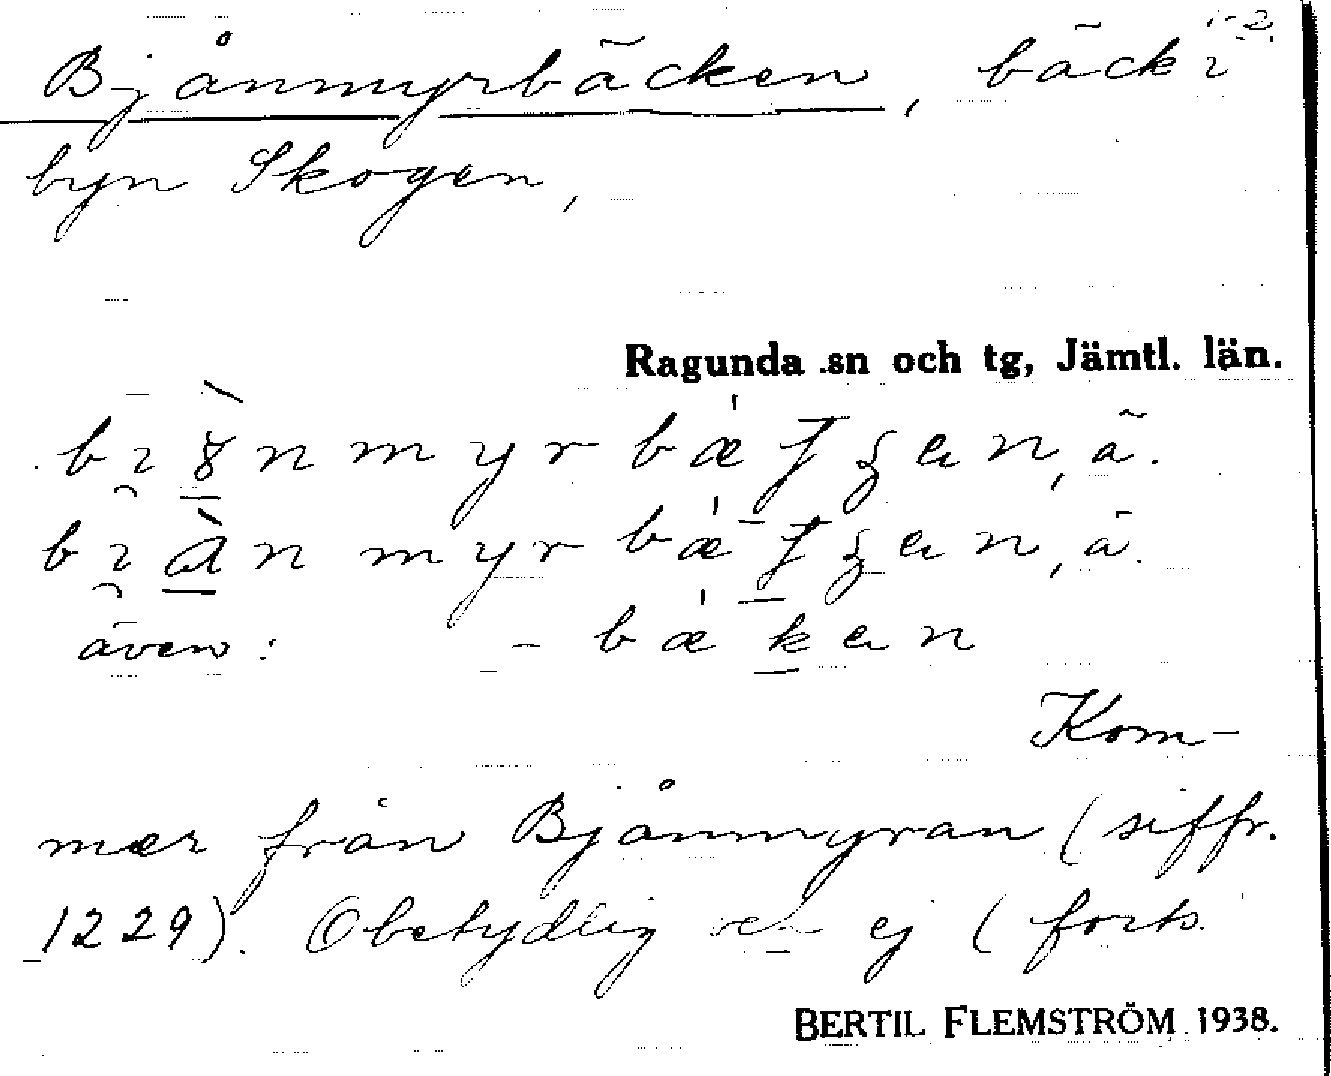 1-2
Bjånmyrbäcken, bäck i
byn Skogen,
Ragunda sn och tg, Jämtl. län.
även: -bækan
Kom-
mer från Bjånmyran (siffr.
1229). Obetydlig och ej (forts.
BERTIL FLEMSTRÖM 1938.